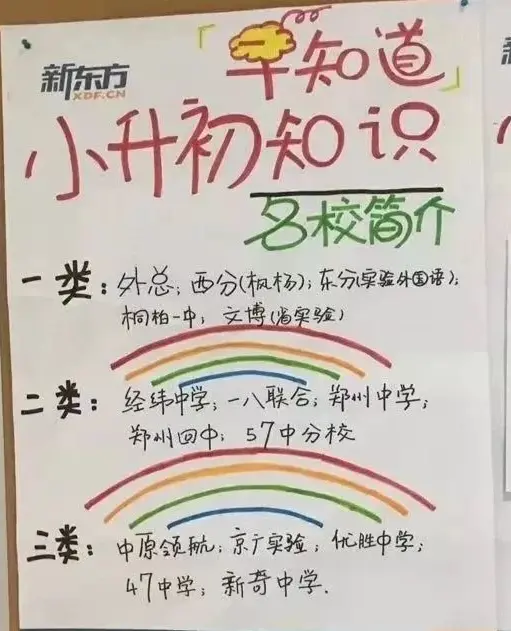 新东方
XDF.CN
「早知道」
小升初知识
名校简介
一类：外总；西分(枫杨)；东分(实验外国语)；
桐柏一中；文博(省实验)
二类：经纬中学；一八联合；郑州中学；
郑州四中；57中分校
三类：中原领航；京广实验；优胜中学；
47中学；新奇中学.